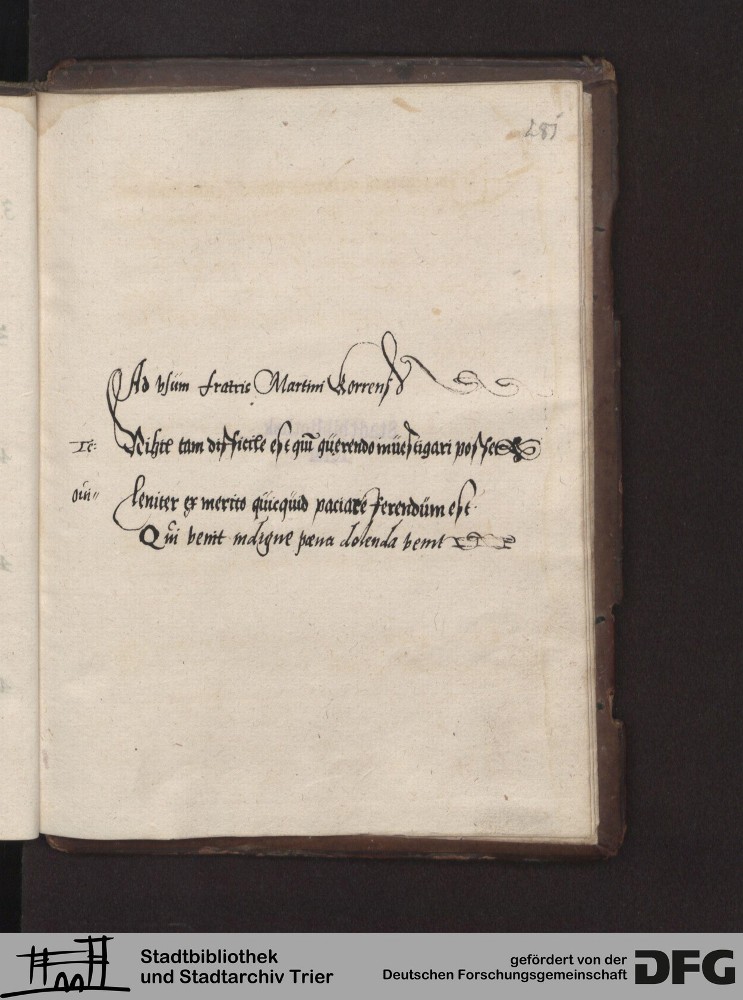 281
Ad vsum fratris Martini
Te: Nihil tam difficile est qui querendo inuestigari posset
oui: Leniter ex merito quicquid paciare ferendum est.
Qui venit indigne pœna dolenda venit
Stadtbibliothek
und Stadtarchiv Trier
gefördert von der
Deutschen Forschungsgemeinschaft
DFG